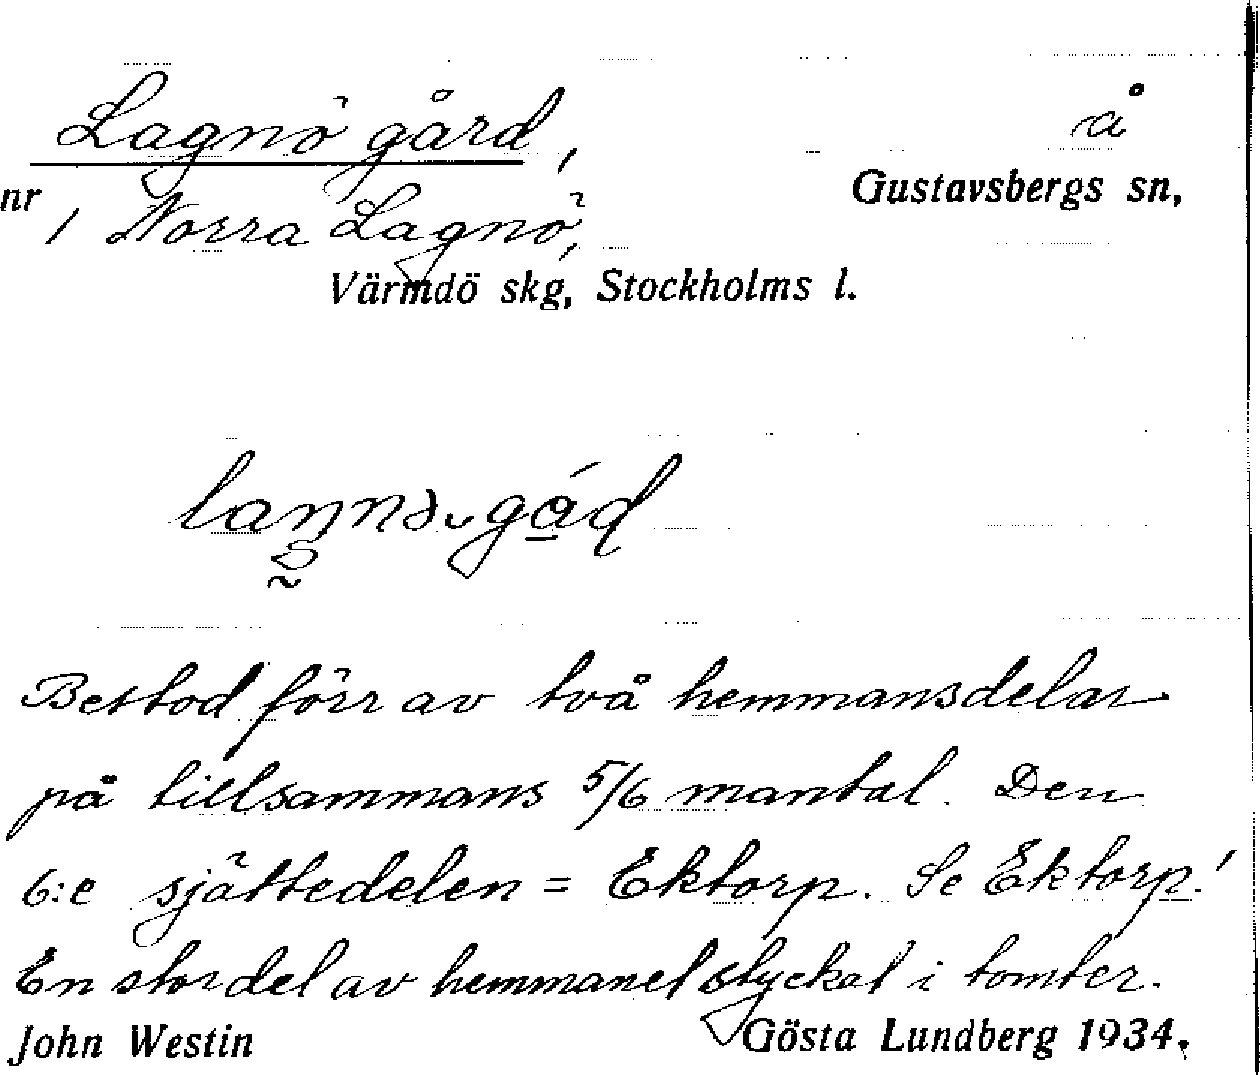 Lagnö gård, å
Gustavsbergs sn,
nr 1 Norra Lagnö,
Värmdö skg, Stockholms l.
Bestod förr av två hemmansdelar
på tillsammans 5/6 mantal. Den
6:e sjättedelen = Ektorp. Se Ektorp!
En stor del av hemmanet styckat i tomter.
John Westin Gösta Lundberg 1934.